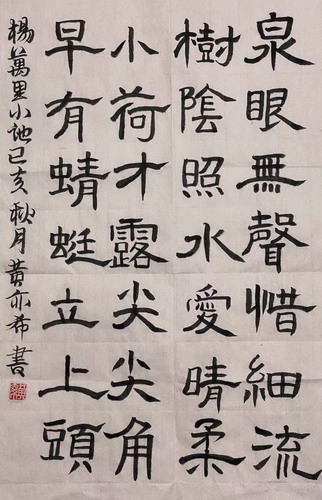 泉眼無聲惜細流
樹陰照水愛晴柔
小荷才露尖尖角
早有蜻蜓立上頭
楊萬里小池己亥秋月黃亦希書